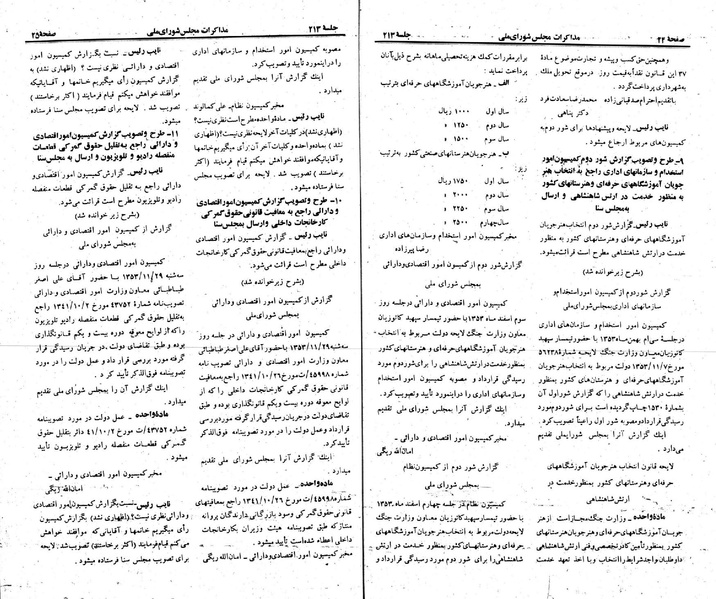 صفحهٔ ۲۴
مذاکرات مجلس شورای ملی
جلسهٔ ۲۱۳
وهمچنین حق کسب و پیشه و تجارت موضوع مادهٔ
۲۷ این قانون نقداً به قیمت روز درموقع تحویل ملك
به شهرداری پرداخت گردد.
باتقدیم احترام صدقیانی زاده محمدرضا سعادت فرد
دکتر پناهی
نایب رئیس ـ لایحه وپیشنهادها برای شور دوم به
کمیسیون‌های مربوط ارجاع میشود.
۹ـ طرح وتصویب گزارش شور دوم کمیسیون امور
استخدام و سازمانهای اداری راجع به انتخاب هنر
جویان آموزشگاههای حرفه‌ای وهنرستانهای کشور
به منظور خدمت در ارتش شاهنشاهی و ارسال
به مجلس سنا
نایب رئیس ـ گزارش شور دوم انتخاب هنرجویان
آموزشگاههای حرفه‌ای و هنرستانهای کشور به منظور
خدمت درارتش شاهنشاهی مطرح است قرائت میشود.
(بشرح زیرخوانده شد)
گزارش شوردوم از کمیسیون اموراستخدام و
سازمانهای اداری بمجلس شورای ملی
کمیسیون امور استخدام و سازمان‌های اداری
درجلسهٔ سی‌ام بهمن ماه ۱۳۵۳ با حضور تیمسار سپهبد
کاتوزیان معاون وزارت جنگ لایحهٔ شمارهٔ ۵۶۲۳۸
۱۳۵۳/۱۱/۷ دولت مربوط به انتخاب هنرجویان
آموزشگاههای حرفه‌ای و هنرستان‌های کشور بمنظور
خدمت درارتش شاهنشاهی را که گزارش شور اول آن
بشمارهٔ ۱۵۳۰ چاپ گردیده است برای شور دوم مورد
رسیدگی قرارداد ومصوبه شور اول راعیناً تصویب کرد.
اینك گزارش آنرا بمجلس شورایملی تقدیم
می‌دارد.
لایحه قانون انتخاب هنرجویان آموزشگاههای
حرفه‌ای وهنرستانهای کشور بمنظور خدمت در
ارتش شاهنشاهی
ماده واحده ـ وزارت جنگ مجاز است از هنر
جویان آموزشگاههای حرفه‌ای وهنرستانهای کشور
بمنظور تأمین کادر تخصصی وفنی ارتش شاهنشاهی
داوطلبان واجد شرایط را انتخاب و با اخذ تعهد خدمت
برابر مقررات کمك هزینه تحصیلی ماهانه بشرح ذیل به آنان
پرداخت نماید:
الف ـ هنرجویان آموزشگاههای حرفه‌ای بترتیب
زیر:
سال اول ۱۰۰۰ ریال
سال دوم ۱۲۵۰ »
سال سوم ۱۵۰۰ »
ب ـ هنرجویان هنرستانهای صنعتی کشور به ترتیب
زیر:
سال اول ۱۷۵۰ ریال
سال دوم ۲۰۰۰ »
سال سوم ۲۲۵۰ »
سال چهارم ۲۵۰۰ »
مخبر کمیسیون امور استخدام وسازمان‌های اداری
رضا پیرزاده
گزارش شور دوم از کمیسیون امور اقتصادی ودارائی
به مجلس شورای ملی
کمیسیون امور اقتصادی ودارائی در جلسه روز
سوم اسفند ماه ۱۳۵۳ با حضور تیمسار سپهبد کاتوزیان
معاون وزارت جنگ لایحه دولت مربوط به انتخاب
هنرجویان آموزشگاههای حرفه‌ای و هنرستانهای کشور
بمنظور خدمت در ارتش شاهنشاهی را برای شور دوم مورد
رسیدگی قرارداد و مصوبه کمیسیون امور استخدام
وسازمانهای اداری را دراینمورد تأیید وتصویب کرد.
اینك گزارش آنرا به مجلس شورای ملی تقدیم
میدارد.
مخبر کمیسیون امور اقتصادی و دارائی ـ
امان‌الله ریگی
گزارش شور دوم از کمیسیون نظام
به مجلس شورای ملی
کمیسیون نظام در جلسه چهارم اسفند ماه ۱۳۵۳
با حضور تیمسار سپهبد کاتوزیان معاون وزارت جنگ
لایحه دولت مربوط به انتخاب هنرجویان آموزشگاههای
حرفه‌ای و هنرستانهای کشور بمنظور خدمت در ارتش
شاهنشاهی را برای شور دوم مورد رسیدگی قرارداد و
جلسهٔ ۲۱۳
مذاکرات مجلس شورای ملی
صفحهٔ ۲۵
مصوبه کمیسیون امور استخدام و سازمانهای اداری
را دراینمورد تأیید وتصویب کرد.
اینك گزارش آنرا بمجلس شورای ملی تقدیم
میدارد.
مخبر کمیسیون نظام ـ علی کمالوند
نایب رئیس ـ ماده واحده مطرح است نظری نیست؟
(اظهاری نشد) در کلیات آخر لایحه نظری نیست؟ (اظهاری
نشد) بماده واحده و کلیات آخر آن رأی میگیریم خانمها
و آقایانیکه موافقند خواهش میکنم قیام فرمایند (اکثر
برخاستند) تصویب شد. لایحه برای تصویب مجلس سنا
فرستاده میشود.
۱۰ـ طرح وتصویب گزارش کمیسیون امور اقتصادی
و دارائی راجع به معافیت قانونی حقوق گمرکی
کارخانجات داخلی وارسال بمجلس سنا
نایب رئیس ـ گزارش کمیسیون امور اقتصادی
ودارائی راجع بمعافیت قانونی حقوق گمرکی کارخانجات
داخلی مطرح است قرائت می‌شود.
(بشرح زیرخوانده شد)
گزارش از کمیسیون امور اقتصادی ودارائی
بمجلس شورای ملی
کمیسیون امور اقتصادی ودارائی در جلسه روز
سه‌شنبه ۱۳۵۳/۱۱/۲۹ با حضور آقای علی اصغر طباطبائی
معاون وزارت امور اقتصادی و دارائی تصویب نامه
شمارهٔ ۴۵۹۹۸/ت مورخ ۱۳۴۱/۱۰/۲۶ راجع به معافیت
قانونی حقوق گمرکی کارخانجات داخلی را که از
لوایح معوقه دوره بیست ویکم قانونگذاری بوده و طبق
تقاضای دولت در جریان رسیدگی قرار گرفته مورد بررسی
قرارداد وعمل دولت را در مورد تصویبنامه فوق‌الذکر
تأیید کرد.
اینك گزارش آنرا بمجلس شورای ملی تقدیم
میدارد.
ماده واحده ـ عمل دولت در مورد تصویبنامه
شماره ۴۵۹۹۸/ت مورخ ۱۳۴۱/۱۰/۲۶ راجع بمعافیتهای
حقوق گمرکی وسود بازرگانی دارندگان پروانه
متناژ که طبق تصویبنامه هیئت وزیران بکارخانجات
داخلی اعطاء شده است تأیید میشود.
مخبر کمیسیون امور اقتصادی ودارائی ـ امان‌الله ریگی
نایب رئیس ـ نسبت بگزارش کمیسیون امور
اقتصادی و دارائی نظری نیست؟ (اظهاری نشد) به
گزارش کمیسیون رأی میگیریم خانمها و آقایانیکه
موافقند خواهش میکنم قیام فرمایند (اکثر برخاستند)
تصویب شد. لایحه برای تصویب مجلس سنا فرستاده
میشود.
۱۱ـ طرح وتصویب گزارش کمیسیون امور اقتصادی
و دارائی راجع به تقلیل حقوق گمرکی قطعات
منفصله رادیو و تلویزیون و ارسال به مجلس سنا
نایب رئیس ـ گزارش کمیسیون امور اقتصادی و
دارائی راجع به تقلیل حقوق گمرکی قطعات منفصله
رادیو وتلویزیون مطرح است قرائت می‌شود.
(بشرح زیر خوانده شد)
گزارش از کمیسیون امور اقتصادی و دارائی
به مجلس شورای ملی
کمیسیون امور اقتصادی ودارائی در جلسه روز
سه‌شنبه ۱۳۵۳/۱۱/۲۹ با حضور آقای علی اصغر
طباطبائی معاون وزارت امور اقتصادی و دارائی
تصویب نامه شمارهٔ ۴۳۷۵۲ مورخ ۱۳۴۱/۱۰/۲
به تقلیل حقوق گمرکی قطعات منفصله رادیو تلویزیون
را که از لوایح معوقه دوره بیست و یکم قانونگذاری
بوده و طبق تقاضای دولت در جریان رسیدگی قرار
گرفته مورد بررسی قرار داد و عمل دولت را در مورد
تصویبنامه فوق‌الذکر تأیید کرد.
اینك گزارش آن را به مجلس شورای ملی تقدیم
میدارد.
ماده واحده ـ عمل دولت در مورد تصویبنامه
شماره ۴۳۷۵۲/ت مورخ ۴۱/۱۰/۲ دائر بتقلیل حقوق
گمرکی قطعات منفصله رادیو و تلویزیون تأیید
میشود.
مخبر کمیسیون امور اقتصادی و دارائی ـ
امان‌الله ریگی
نایب رئیس ـ نسبت بگزارش کمیسیون امور اقتصادی
ودارائی نظری نیست؟ (اظهاری نشد) بگزارش کمیسیون
رأی میگیریم خانمها و آقایانی که موافقند خواهش
می‌کنم قیام فرمایند (اکثر برخاستند) تصویب شد لایحه
برای تصویب مجلس سنا فرستاده میشود.